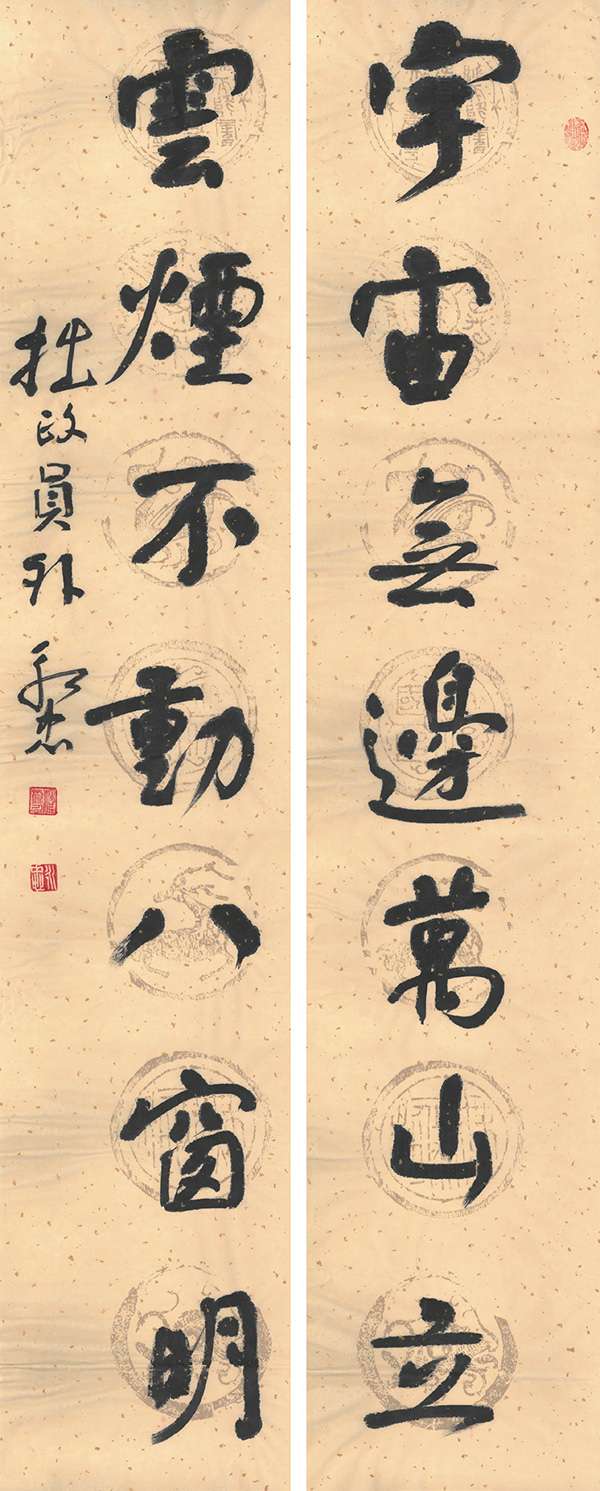 宇宙無邊萬山立
雲煙不動八窗明
拙政員外 永忠